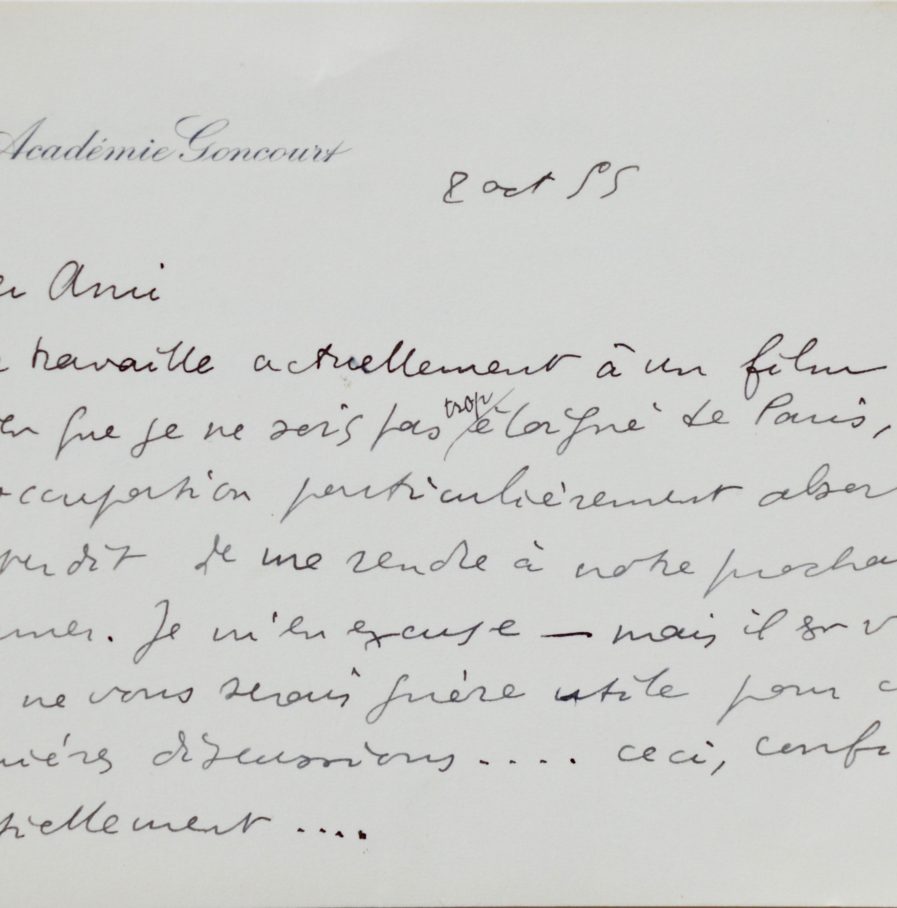 Académie Goncourt
8 oct 55
er Ami
travaille actuellement à un film
en que je ne sois pas trop éloigné de Paris,
occupation particulièrement absor
erdit de me rendre à notre procha
îner. Je m'en excuse — mais il est v
ne vous serais guère utile pour c
nières discussions..... ceci, confi
tiellement ....